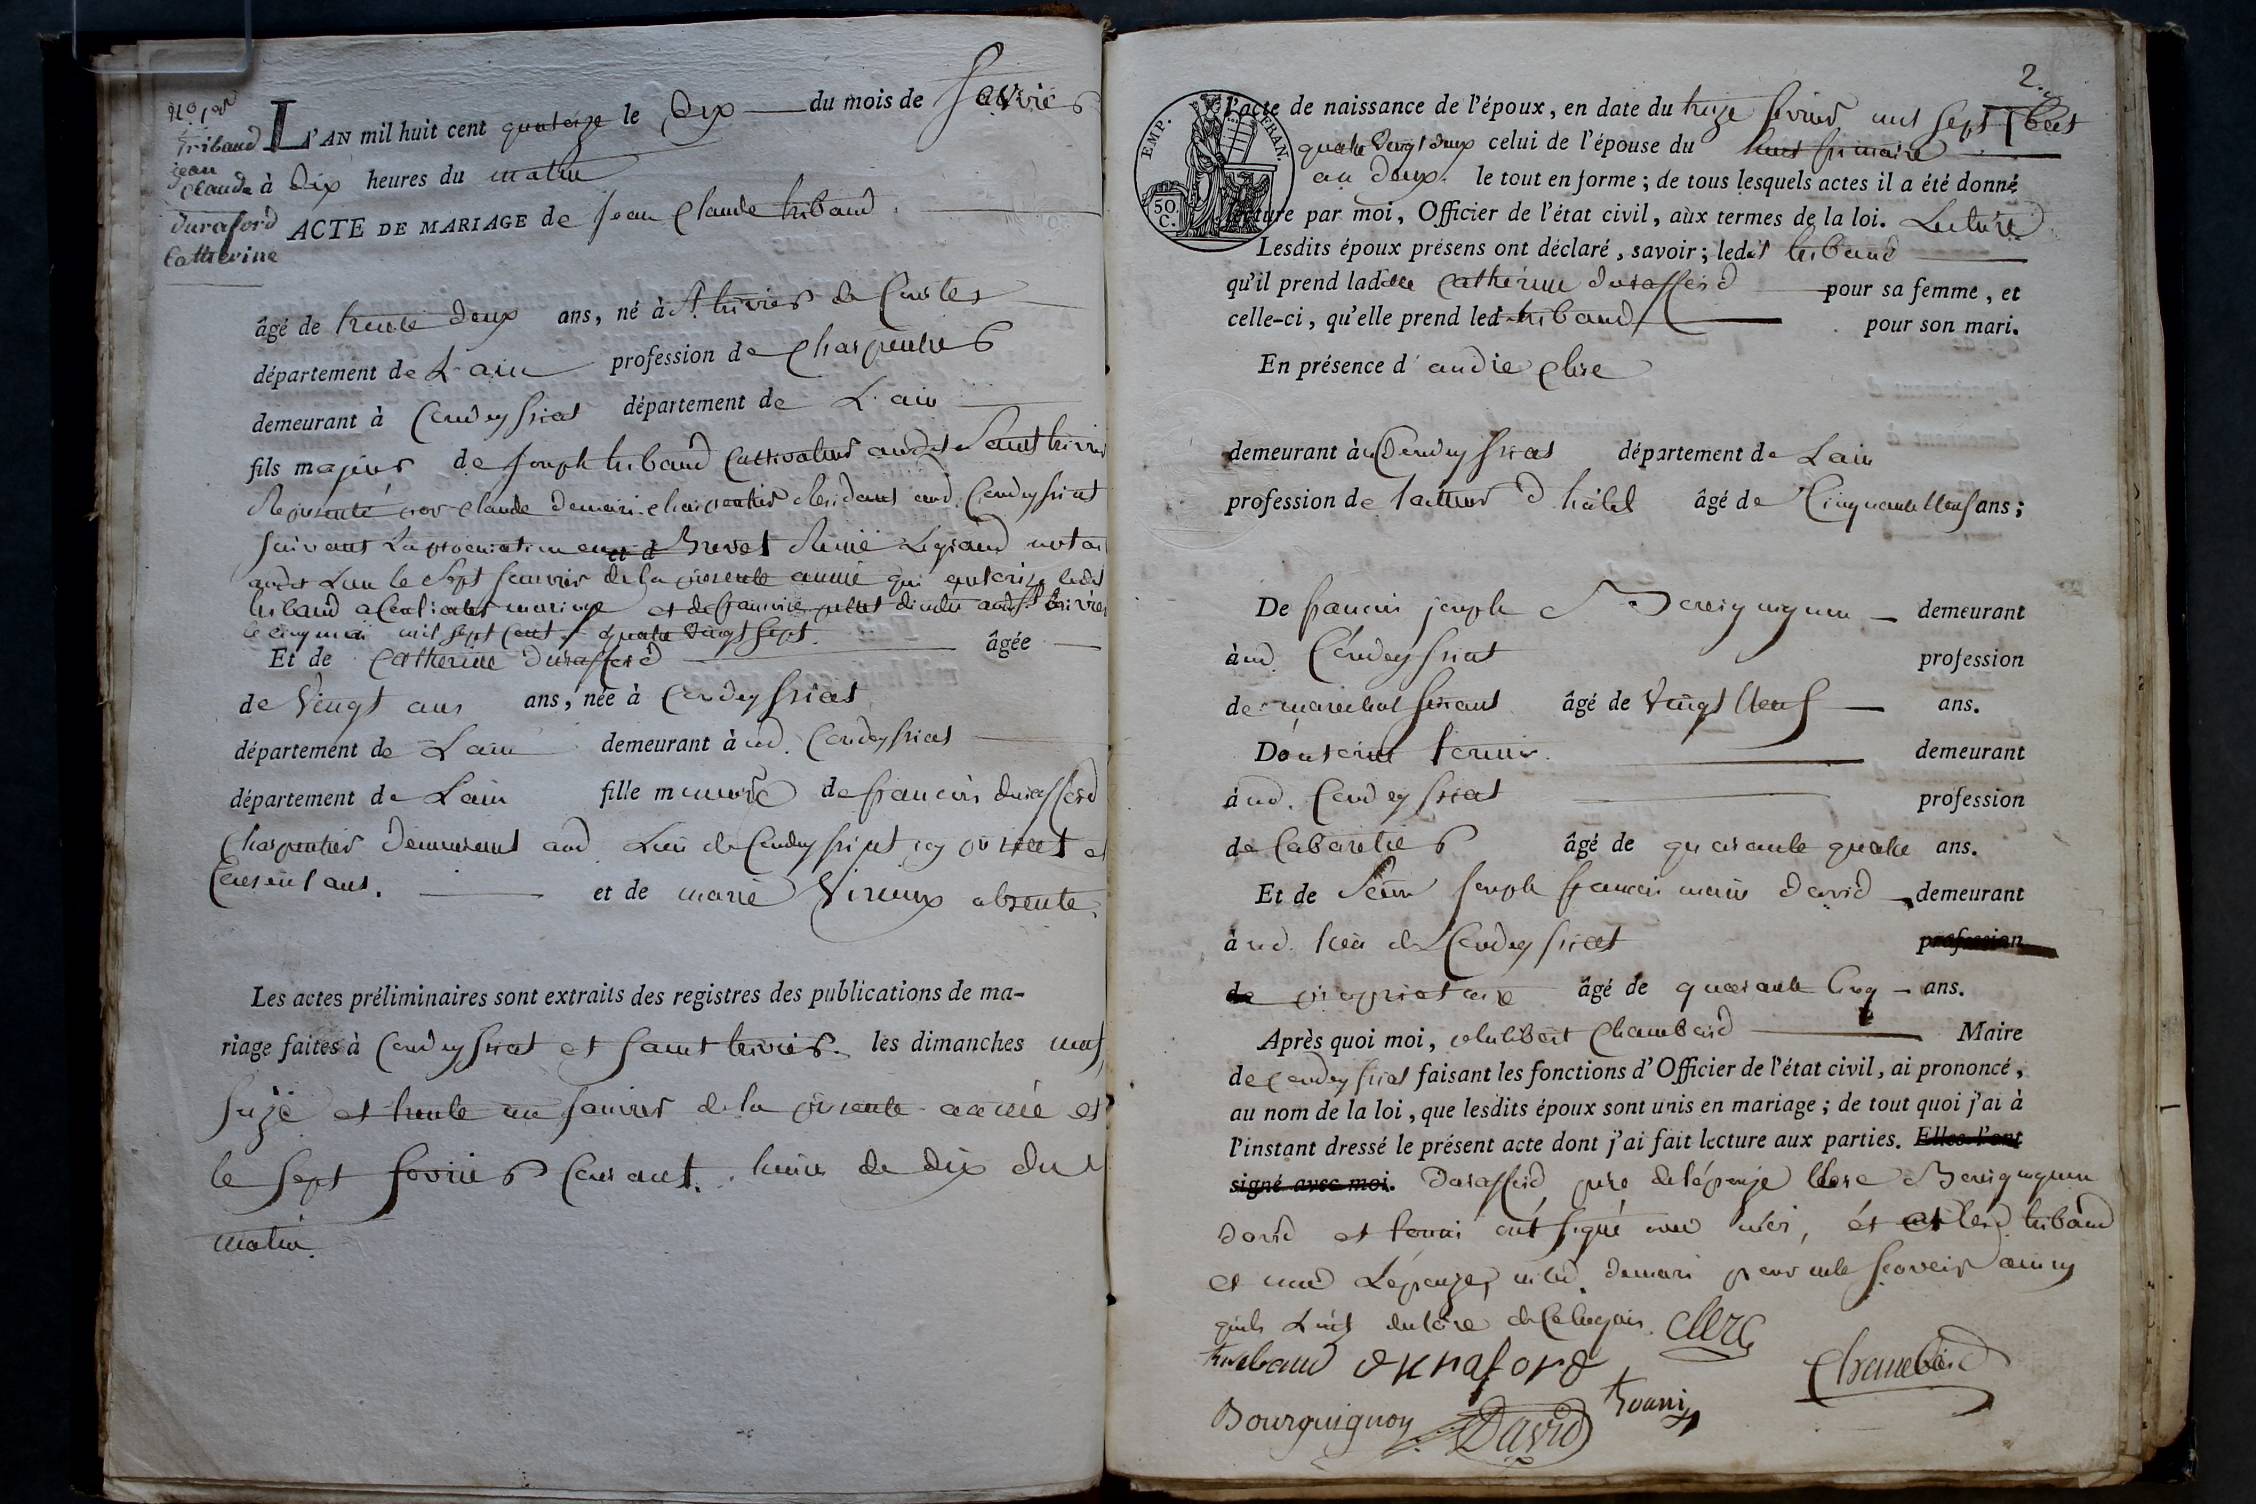 tribaud
jean
claude
duraford
Catherine
L'AN mil huit cent quatorze le dix du mois de
à dix heures du matin
ACTE DE MARIAGE de Jean Claude tribaud
âgé de trente deux ans, né à St trivier de Courtes
département de L'ain profession de Charpentier
demeurant à Condeyssiat département de L'ain
fils majeur de Joseph tribaud Cultivateur audit Saint trivier
Représenté par Claude demari charpentier Residant aud. Condeyssiat
Suivant La procuration en Brevet Legrand
audit Lieu le Sept janvier de la présente année qui autorise ledit
tribaud mariage et de
le cinq mai mil sept cent quatre vingt sept.
Et de Catherine durafford âgée
de Vingt ans ans, née à Condeyssiat
département de Lain demeurant à ud. Condeyssiat
département de Lain fille mineure de francois durafford
Charpentier demeurant aud. Lieu de Condeyssiat présent et
Consentant. et de marie Vireux absente.
Les actes préliminaires sont extraits des registres des publications de ma-
riage faites à Condeyssiat et Saint trivier. les dimanches
Seize et trente un janvier de la présente année et
le Sept fevrier Courant. heure de dix du
matin.
2.
l'acte de naissance de l'époux, en date du treize fevrier mil Sept Cent
quatre Vingt deux celui de l'épouse du huit frimaire
an deux. le tout en forme; de tous lesquels actes il a été donné
EMP. FRAN.
50 C.
lecture par moi, Officier de l'état civil, aux termes de la loi. Lecture
Lesdits époux présens ont déclaré, savoir; ledit tribaud
qu'il prend ladite Catherine durafford pour sa femme, et
celle-ci, qu'elle prend led. tribaud pour son mari.
En présence d'andré Clerc
demeurant à Condeyssiat département de Lain
profession de âgé de Cinquante Neuf ans;
De francois joseph Bourguignon demeurant
à ud. Condeyssiat profession
de marechal ferrant âgé de Vingt Neuf ans.
D'antoine demeurant
à ud. Condeyssiat profession
de Cabaretier âgé de quarante quatre ans.
Et de Jean Joseph francois marie david demeurant
à ud. lieu de Condeyssiat profession
de propriétaire âgé de quarante Cinq ans.
Après quoi moi, philibert Chambard Maire
de Condeyssiat faisant les fonctions d'Officier de l'état civil, ai prononcé,
au nom de la loi, que lesdits époux sont unis en mariage; de tout quoi j'ai à
l'instant dressé le présent acte dont j'ai fait lecture aux parties. Elles l'ont
signé avec moi. durafford père de l'épouse Clerc Bourguignon
david et ont signé avec moi, et led. tribaud
et non L'épouse, ni led. demari pour ne le Scavoir ainsi
qu'ils L'ont déclaré de Ce Requis. Clerc
tribaud duraford Chambard
Bourguignon David